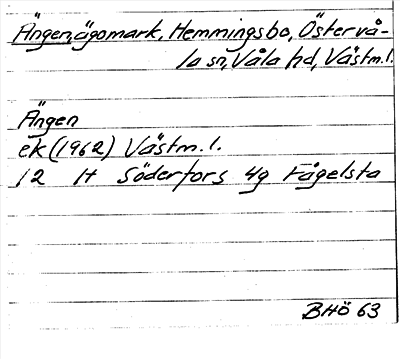 Ängen, ägomark, Hemmingsbo, Östervå-
la sn, Våla hd, Västm.l.
Ängen
ek (1962) Västm. l.
12 H Söderfors 4g Fågelsta
BHÖ 63